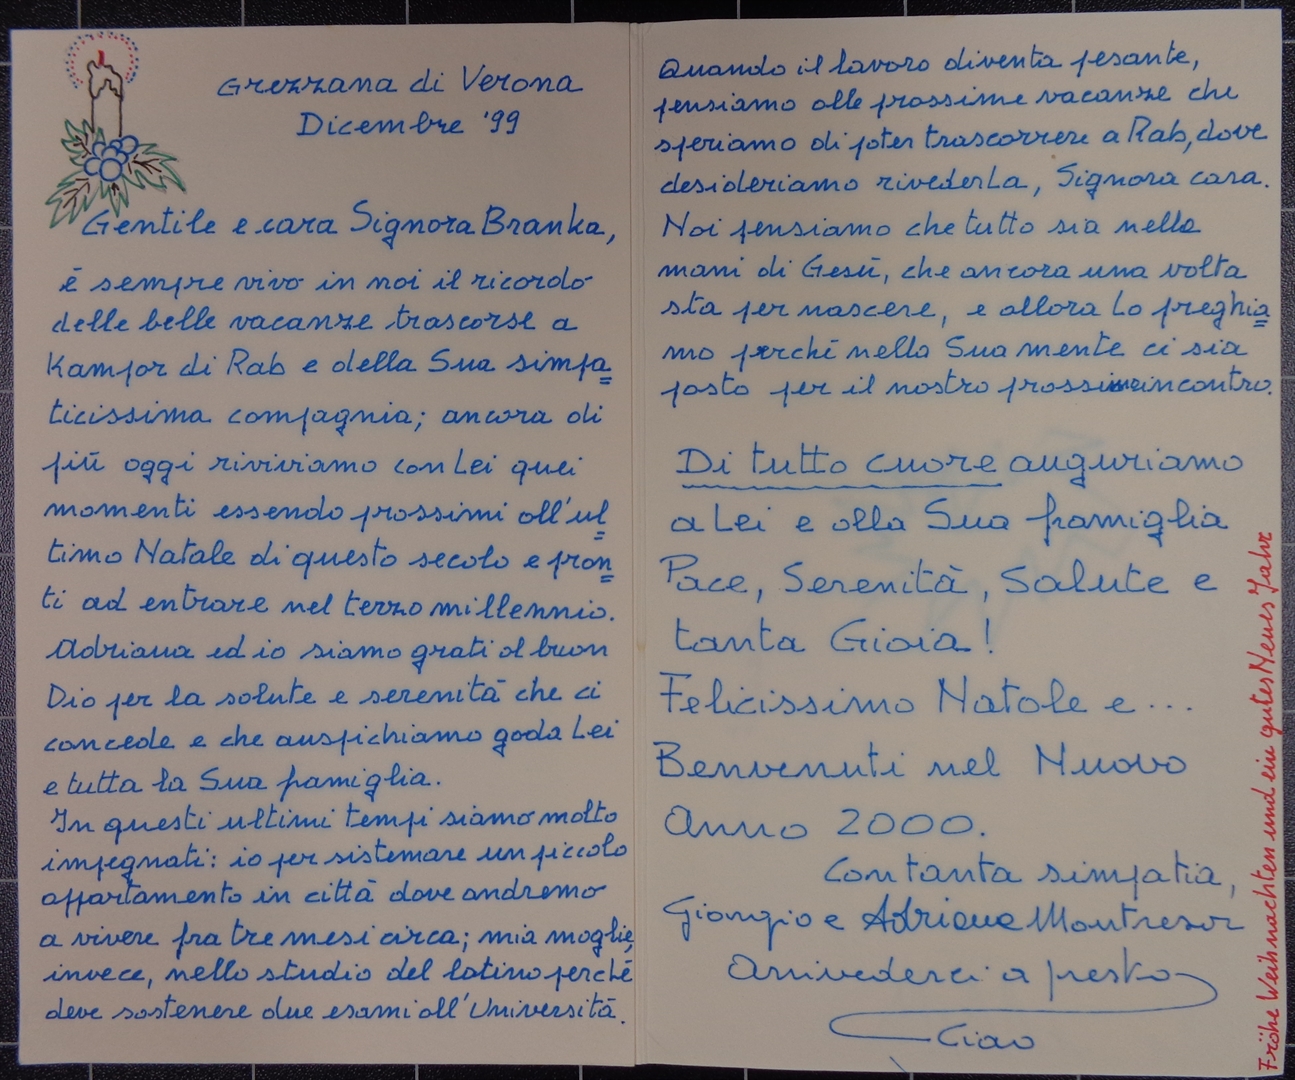 Grezzana di Verona
Dicembre '99
Gentile e cara Signora Branka,
è sempre vivo in noi il ricordo
delle belle vacanze trascorse a
Kampor di Rab e della Sua simpa=
ticissima compagnia; ancora di
più oggi riviviamo con Lei quei
momenti essendo prossimi all'ul=
timo Natale di questo secolo e pron=
ti ad entrare nel terzo millennio.
Adriana ed io siamo grati al buon
Dio per la salute e serenità che ci
concede e che auspichiamo goda Lei
e tutta la Sua famiglia.
In questi ultimi tempi siamo molto
impegnati: io per sistemare un piccolo
appartamento in città dove andremo
a vivere fra tre mesi circa; mia moglie,
invece, nello studio del latino perché
deve sostenere due esami all'Università.
Quando il lavoro diventa pesante,
pensiamo alle prossime vacanze che
speriamo di poter trascorrere a Rab, dove
desideriamo rivederLa, Signora cara.
Noi pensiamo che tutto sia nelle
mani di Gesù, che ancora una volta
sta per nascere, e allora Lo preghia=
mo perché nella Sua mente ci sia
posto per il nostro prossimo incontro.
Di tutto cuore auguriamo
a Lei e alla Sua famiglia
Pace, Serenità, Salute e
tanta Gioia!
Felicissimo Natale e...
Benvenuti nel Nuovo
Anno 2000.
Con tanta simpatia,
Giorgio e Adriana Montresor
Arrivederci a presto
Ciao
Fröhe Weihnachten und ein gutes Neues Jahr